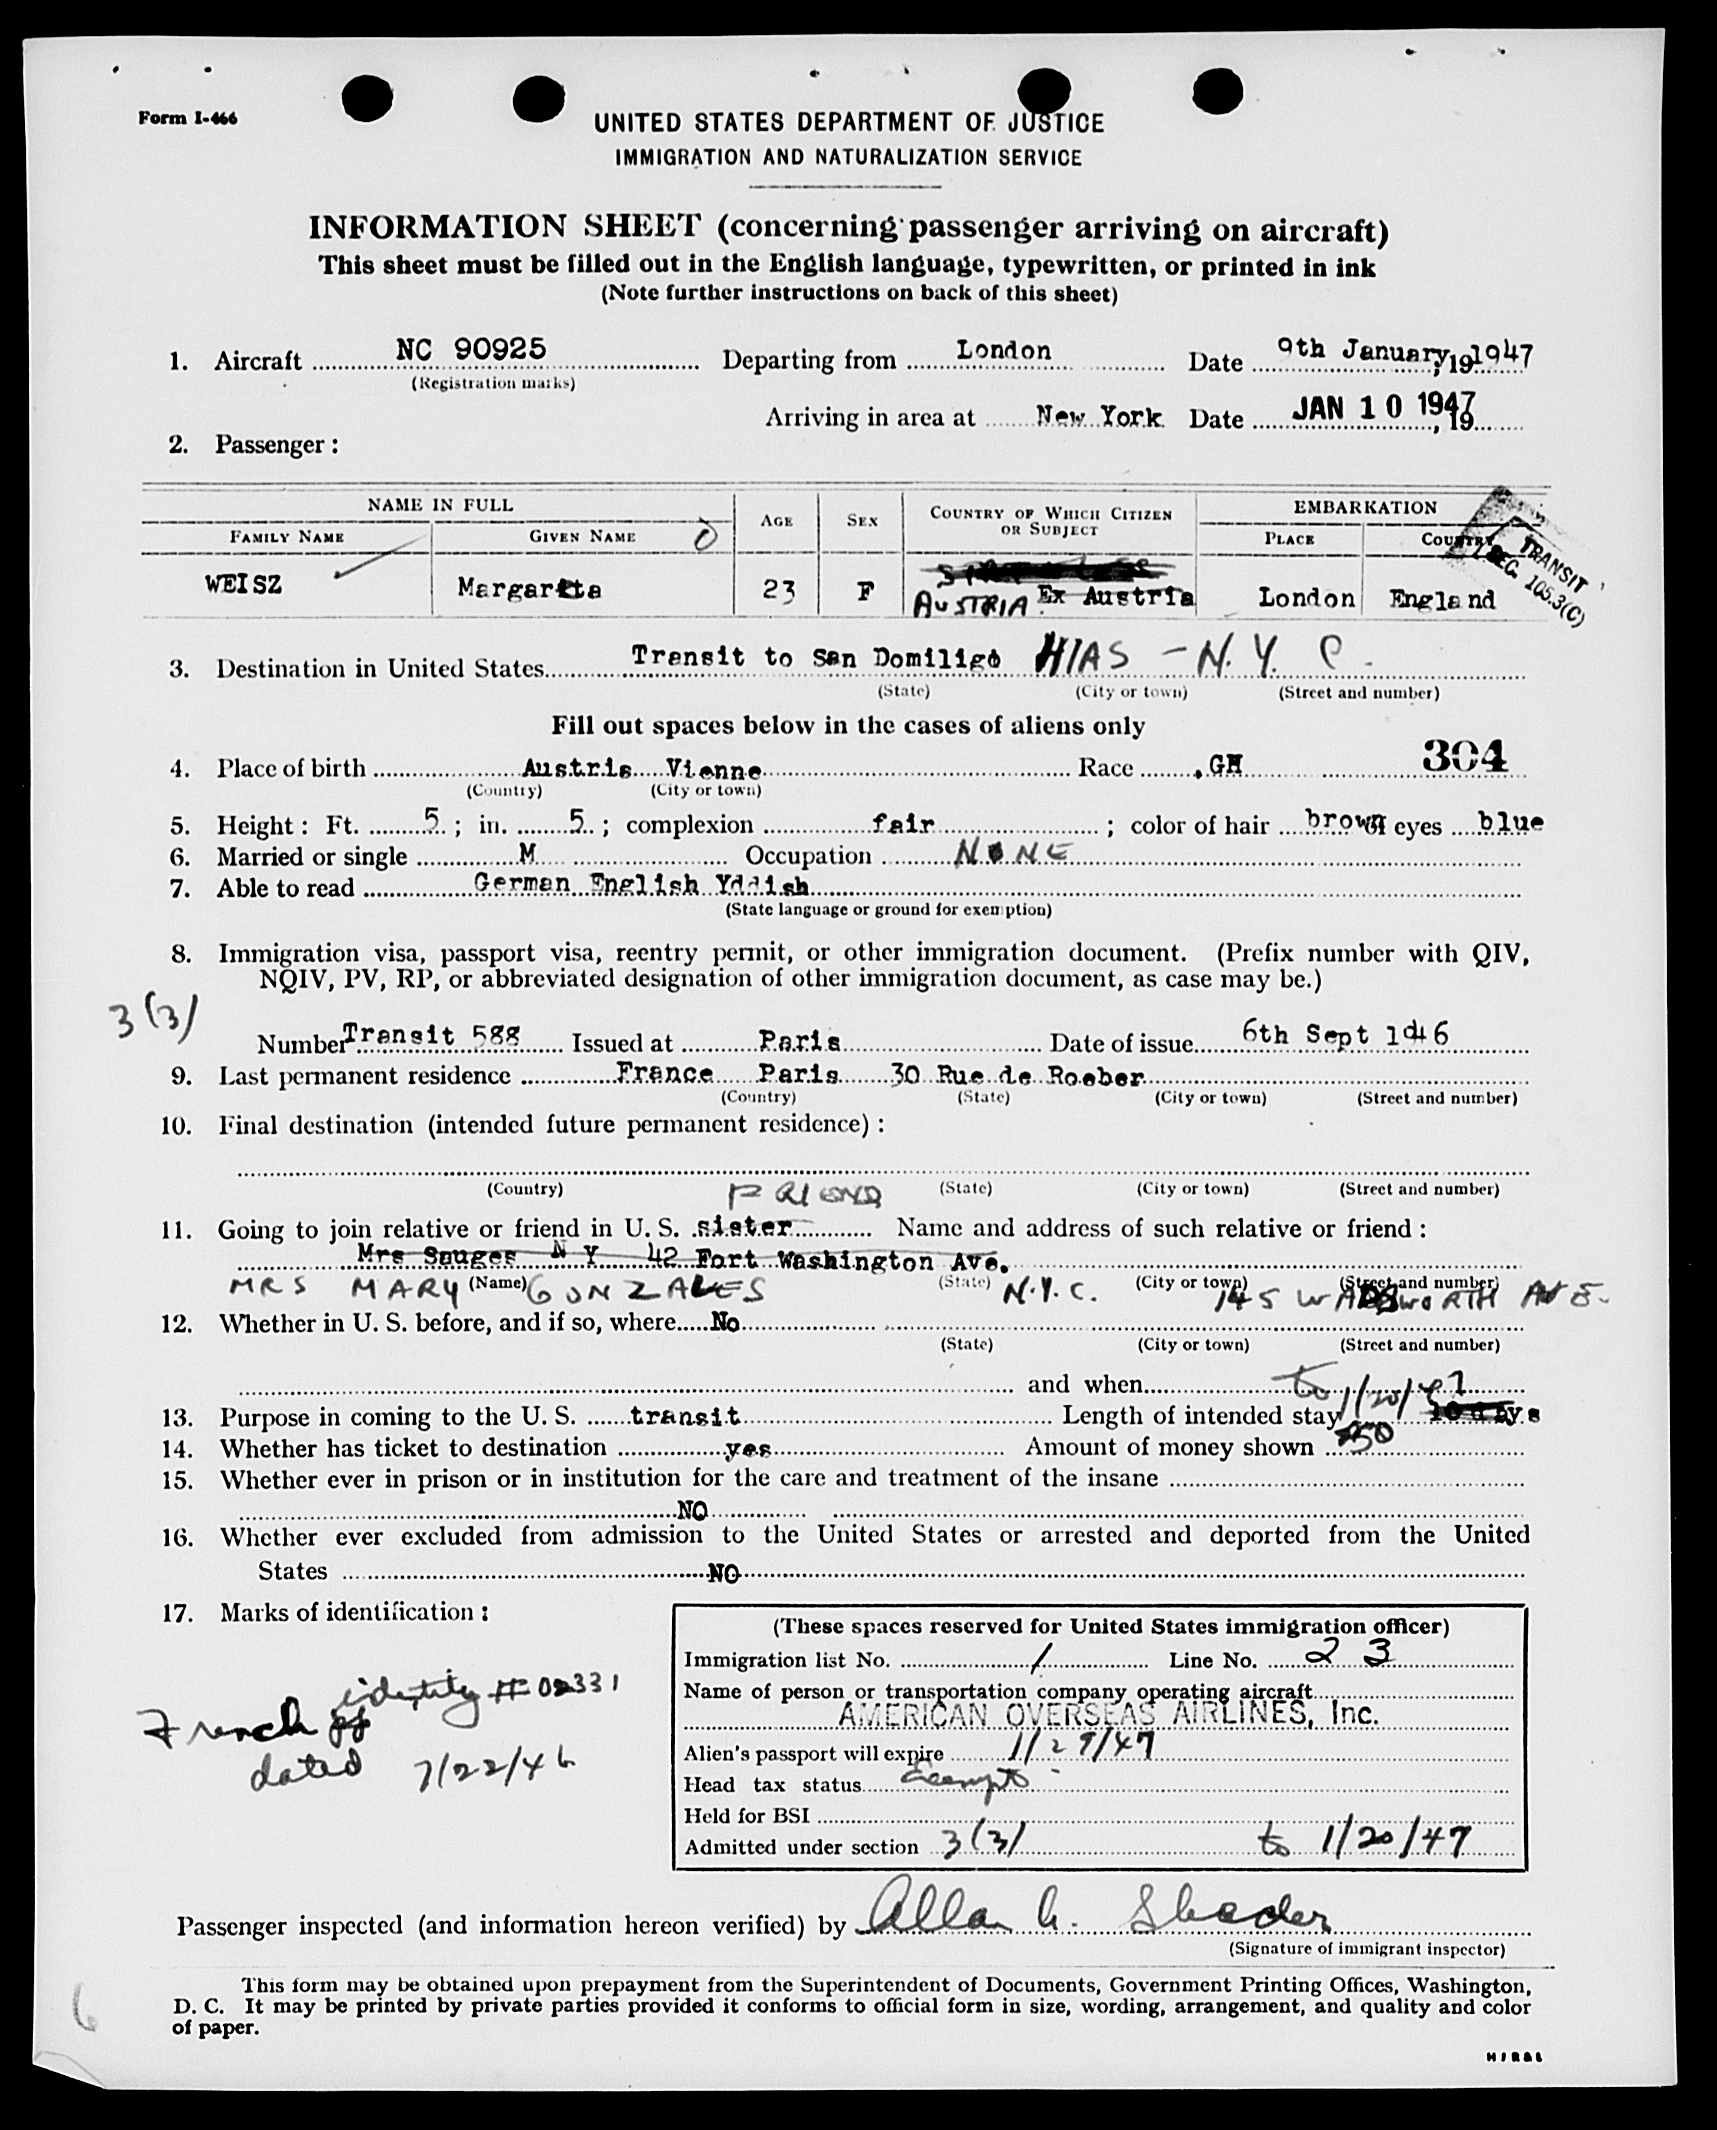 Form I-466
UNITED STATES DEPARTMENT OF JUSTICE
IMMIGRATION AND NATURALIZATION SERVICE
INFORMATION SHEET (concerning passenger arriving on aircraft)
This sheet must be filled out in the English language, typewritten, or printed in ink
(Note further instructions on back of this sheet)
1. Aircraft NC 90925 Departing from London Date 9th January, 19 1947
(Registration marks)
Arriving in area at New York Date JAN 10 1947, 19
2. Passenger:
NAME IN FULL AGE SEX COUNTRY OF WHICH CITIZEN OR SUBJECT EMBARKATION
FAMILY NAME GIVEN NAME PLACE COUNTRY
TRANSIT
SEC. 105.3(C)
WEISZ Margarita 23 F AUSTRIA Ex Austria London England
3. Destination in United States Transit to San Domiligo HIAS - N. Y. C.
(State) (City or town) (Street and number)
Fill out spaces below in the cases of aliens only
304
4. Place of birth Austria Vienne Race GH
(Country) (City or town)
5. Height: Ft. 5; in. 5; complexion fair; color of hair brown eyes blue
6. Married or single M Occupation NONE
7. Able to read German English Yddish
(State language or ground for exemption)
8. Immigration visa, passport visa, reentry permit, or other immigration document. (Prefix number with QIV,
NQIV, PV, RP, or abbreviated designation of other immigration document, as case may be.)
3(3)
Number Transit 588 Issued at Paris Date of issue 6th Sept 1946
9. Last permanent residence France Paris 30 Rue de Roeber
(Country) (State) (City or town) (Street and number)
10. Final destination (intended future permanent residence):
(Country) (State) (City or town) (Street and number)
FRIEND
11. Going to join relative or friend in U. S. sister Name and address of such relative or friend:
Mrs Sauges N Y 42 Fort Washington Ave.
(Name) (State) (City or town) (Street and number)
MRS MARY GONZALES N.Y.C. 145 WADSWORTH AVE.
12. Whether in U. S. before, and if so, where No
(State) (City or town) (Street and number)
and when
to 1/20/47
13. Purpose in coming to the U. S. transit Length of intended stay 10 days
14. Whether has ticket to destination yes Amount of money shown $50
15. Whether ever in prison or in institution for the care and treatment of the insane
NO
16. Whether ever excluded from admission to the United States or arrested and deported from the United
States NO
17. Marks of identification:
French identity # 02331
dated 7/22/46
(These spaces reserved for United States immigration officer)
Immigration list No. 1 Line No. 23
Name of person or transportation company operating aircraft
AMERICAN OVERSEAS AIRLINES, Inc.
Alien's passport will expire 1/29/47
Head tax status Exempt
Held for BSI
Admitted under section 3(3) to 1/20/47
Passenger inspected (and information hereon verified) by Allan
(Signature of immigrant inspector)
This form may be obtained upon prepayment from the Superintendent of Documents, Government Printing Offices, Washington,
D. C. It may be printed by private parties provided it conforms to official form in size, wording, arrangement, and quality and color
of paper.
6